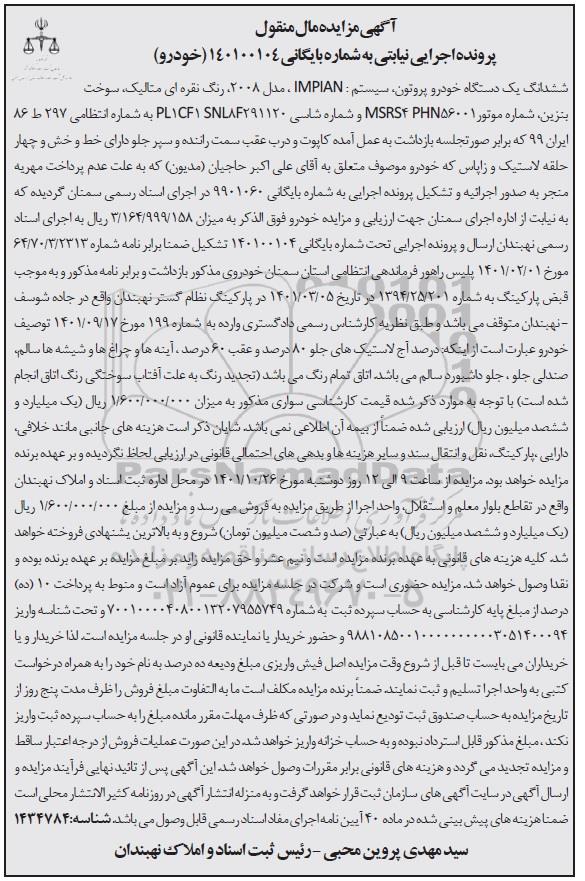 آگهی مزایده مال منقول
پرونده اجرایی نیابتی به شماره بایگانی ۱۴۰۱۰۰۱۰۴ (خودرو)
ششدانگ یک دستگاه خودرو پروتون، سیستم : IMPIAN ، مدل ۲۰۰۸، رنگ نقره ای متالیک، سوخت
بنزین، شماره موتور MSRS۴ PHN۵۶۰۰۱ و شماره شاسی PL۱CF۱ SNL۸F۲۹۱۱۲۰ به شماره انتظامی ۲۹۷ ط ۸۶
ایران ۹۹ که برابر صورتجلسه بازداشت به عمل آمده کاپوت و درب عقب سمت راننده و سپر جلو دارای خط و خش و چهار
حلقه لاستیک و زاپاس که خودرو موصوف متعلق به آقای علی اکبر حاجیان (مدیون) که به علت عدم پرداخت مهریه
منجر به صدور اجرائیه و تشکیل پرونده اجرایی به شماره بایگانی ۹۹۰۱۰۶۰ در اجرای اسناد رسمی سمنان گردیده که
به نیابت از اداره اجرای سمنان جهت ارزیابی و مزایده خودرو فوق الذکر به میزان ۳/۱۶۴/۹۹۹/۱۵۸ ریال به اجرای اسناد
رسمی نهبندان ارسال و پرونده اجرایی تحت شماره بایگانی ۱۴۰۱۰۰۱۰۴ تشکیل ضمنا برابر نامه شماره ۶۴/۷۰/۳/۲۳۱۳
مورخ ۱۴۰۱/۰۲/۰۱ پلیس راهور فرماندهی انتظامی استان سمنان خودروی مذکور بازداشت و برابر نامه مذکور و به موجب
قبض پارکینگ به شماره ۱۳۹۴/۲۵/۲۰۱ در تاریخ ۱۴۰۱/۰۳/۰۵ در پارکینگ نظام گستر نهبندان واقع در جاده شوسف
-نهبندان متوقف می باشد و طبق نظریه کارشناس رسمی دادگستری وارده به شماره ۱۹۹ مورخ ۱۴۰۱/۰۹/۱۷ توصیف
خودرو عبارت است از اینکه: درصد آج لاستیک های جلو ۸۰ درصد و عقب ۶۰ درصد ، آینه ها و چراغ ها و شیشه ها سالم،
صندلی جلو ، جلو داشبورد سالم می باشد. اتاق تمام رنگ می باشد (تجدید رنگ به علت آفتاب سوختگی رنگ اتاق انجام
شده است) با توجه به موارد ذکر شده قیمت کارشناسی سواری مذکور به میزان ۱/۶۰۰/۰۰۰/۰۰۰ ریال (یک میلیارد و
ششصد میلیون ریال) ارزیابی شده ضمناً از بیمه آن اطلاعی نمی باشد. شایان ذکر است هزینه های جانبی مانند خلافی،
دارایی ،پارکینگ، نقل و انتقال سند و سایر هزینه ها و بدهی های احتمالی قانونی در ارزیابی لحاظ نگردیده و بر عهده برنده
مزایده خواهد بود. مزایده از ساعت ۹ الی ۱۲ روز دوشنبه مورخ ۱۴۰۱/۱۰/۲۶ در محل اداره ثبت اسناد و املاک نهبندان
واقع در تقاطع بلوار معلم و استقلال، واحد اجرا از طریق مزایده به فروش می رسد و مزایده از مبلغ ۱/۶۰۰/۰۰۰/۰۰۰ ریال
(یک میلیارد و ششصد میلیون ریال) به عبارتی (صد و شصت میلیون تومان) شروع و به بالاترین پیشنهادی فروخته خواهد
شد. کلیه هزینه های قانونی به عهده برنده مزایده است و نیم عشر و حق مزایده زاید بر مبلغ مزایده بر عهده برنده بوده و
نقدا وصول خواهد شد. مزایده حضوری است و شرکت در جلسه مزایده برای عموم آزاد است و منوط به پرداخت ۱۰ (ده)
درصد از مبلغ پایه کارشناسی به حساب سپرده ثبت به شماره ۷۰۰۱۰۰۰۰۴۰۸۰۰۱۳۲۰۷۹۵۵۷۴۹ و تحت شناسه واریز
۹۸۸۱۰۸۵۰۰۱۰۰۰۰۰۰۰۰۰۰۳۰۵۱۴۰۰۰۹۴ و حضور خریدار یا نماینده قانونی او در جلسه مزایده است، لذا خریدار و یا
خریداران می بایست تا قبل از شروع وقت مزایده اصل فیش واریزی مبلغ ودیعه ده درصد به نام خود را به همراه درخواست
کتبی به واحد اجرا تسلیم و ثبت نمایند. ضمناً برنده مزایده مکلف است ما به التفاوت مبلغ فروش را ظرف مدت پنج روز از
تاریخ مزایده به حساب صندوق ثبت تودیع نماید و در صورتی که ظرف مهلت مقرر مانده مبلغ را به حساب سپرده ثبت واریز
نکند ، مبلغ مذکور قابل استرداد نبوده و به حساب خزانه واریز خواهد شد. در این صورت عملیات فروش از درجه اعتبار ساقط
و مزایده تجدید می گردد و هزینه های قانونی برابر مقررات وصول خواهد شد. این آگهی پس از تائید نهایی فرآیند مزایده و
ارسال آگهی در سایت آگهی های سازمان ثبت قرار خواهد گرفت و به منزله انتشار آگهی در روزنامه کثیر الانتشار محلی است
ضمنا هزینه های پیش بینی شده در ماده ۴۰ آیین نامه اجرای مفاد اسناد رسمی قابل وصول می باشد. شناسه: ۱۴۳۴۷۸۴
سید مهدی پروین محبی - رئیس ثبت اسناد و املاک نهبندان
ParsNamadData
۰۲۱-۸۸۳۴۹۶۷۰-۵